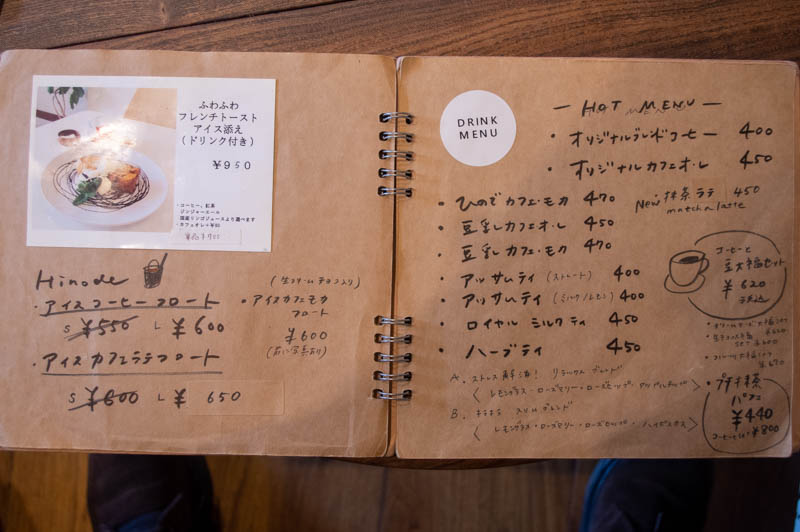 ふわふわ
フレンチトースト
アイス添え
(ドリンク付き)
￥950
・コーヒー、紅茶
ジンジャーエール
国産リンゴジュースより選べます
・カフェオレ+¥50
Hinode
・アイスコーヒーフロート
S ¥550 L ¥600
・アイスカフェラテフロート
S ¥600 L ¥ 650
(生クリームチョコ入り)
・アイスカフェモカ
フロート
¥600
DRINK
MENU
― HOT MENU ―
・オリジナルブレンドコーヒー 400
・オリジナルカフェオ・レ 450
・ひのでカフェ・モカ 470
New 抹茶ラテ 450
matcha latte
・豆乳カフェオ・レ 450
・豆乳カフェ・モカ 470
・アッサムティ (ストレート) 400
・アッサムティ (ミルク/レモン) 400
・ロイヤル ミルクティ 450
・ハーブティ 450
A. ストレス解消! リラックス ブレンド
B. キラキラ スリムブレンド
〈 レモングラス・ローズマリー・ローズヒップ・ハイビスカス 〉
コーヒーと
豆大福セット
¥620
・プチ抹茶
パフェ
¥440
¥800